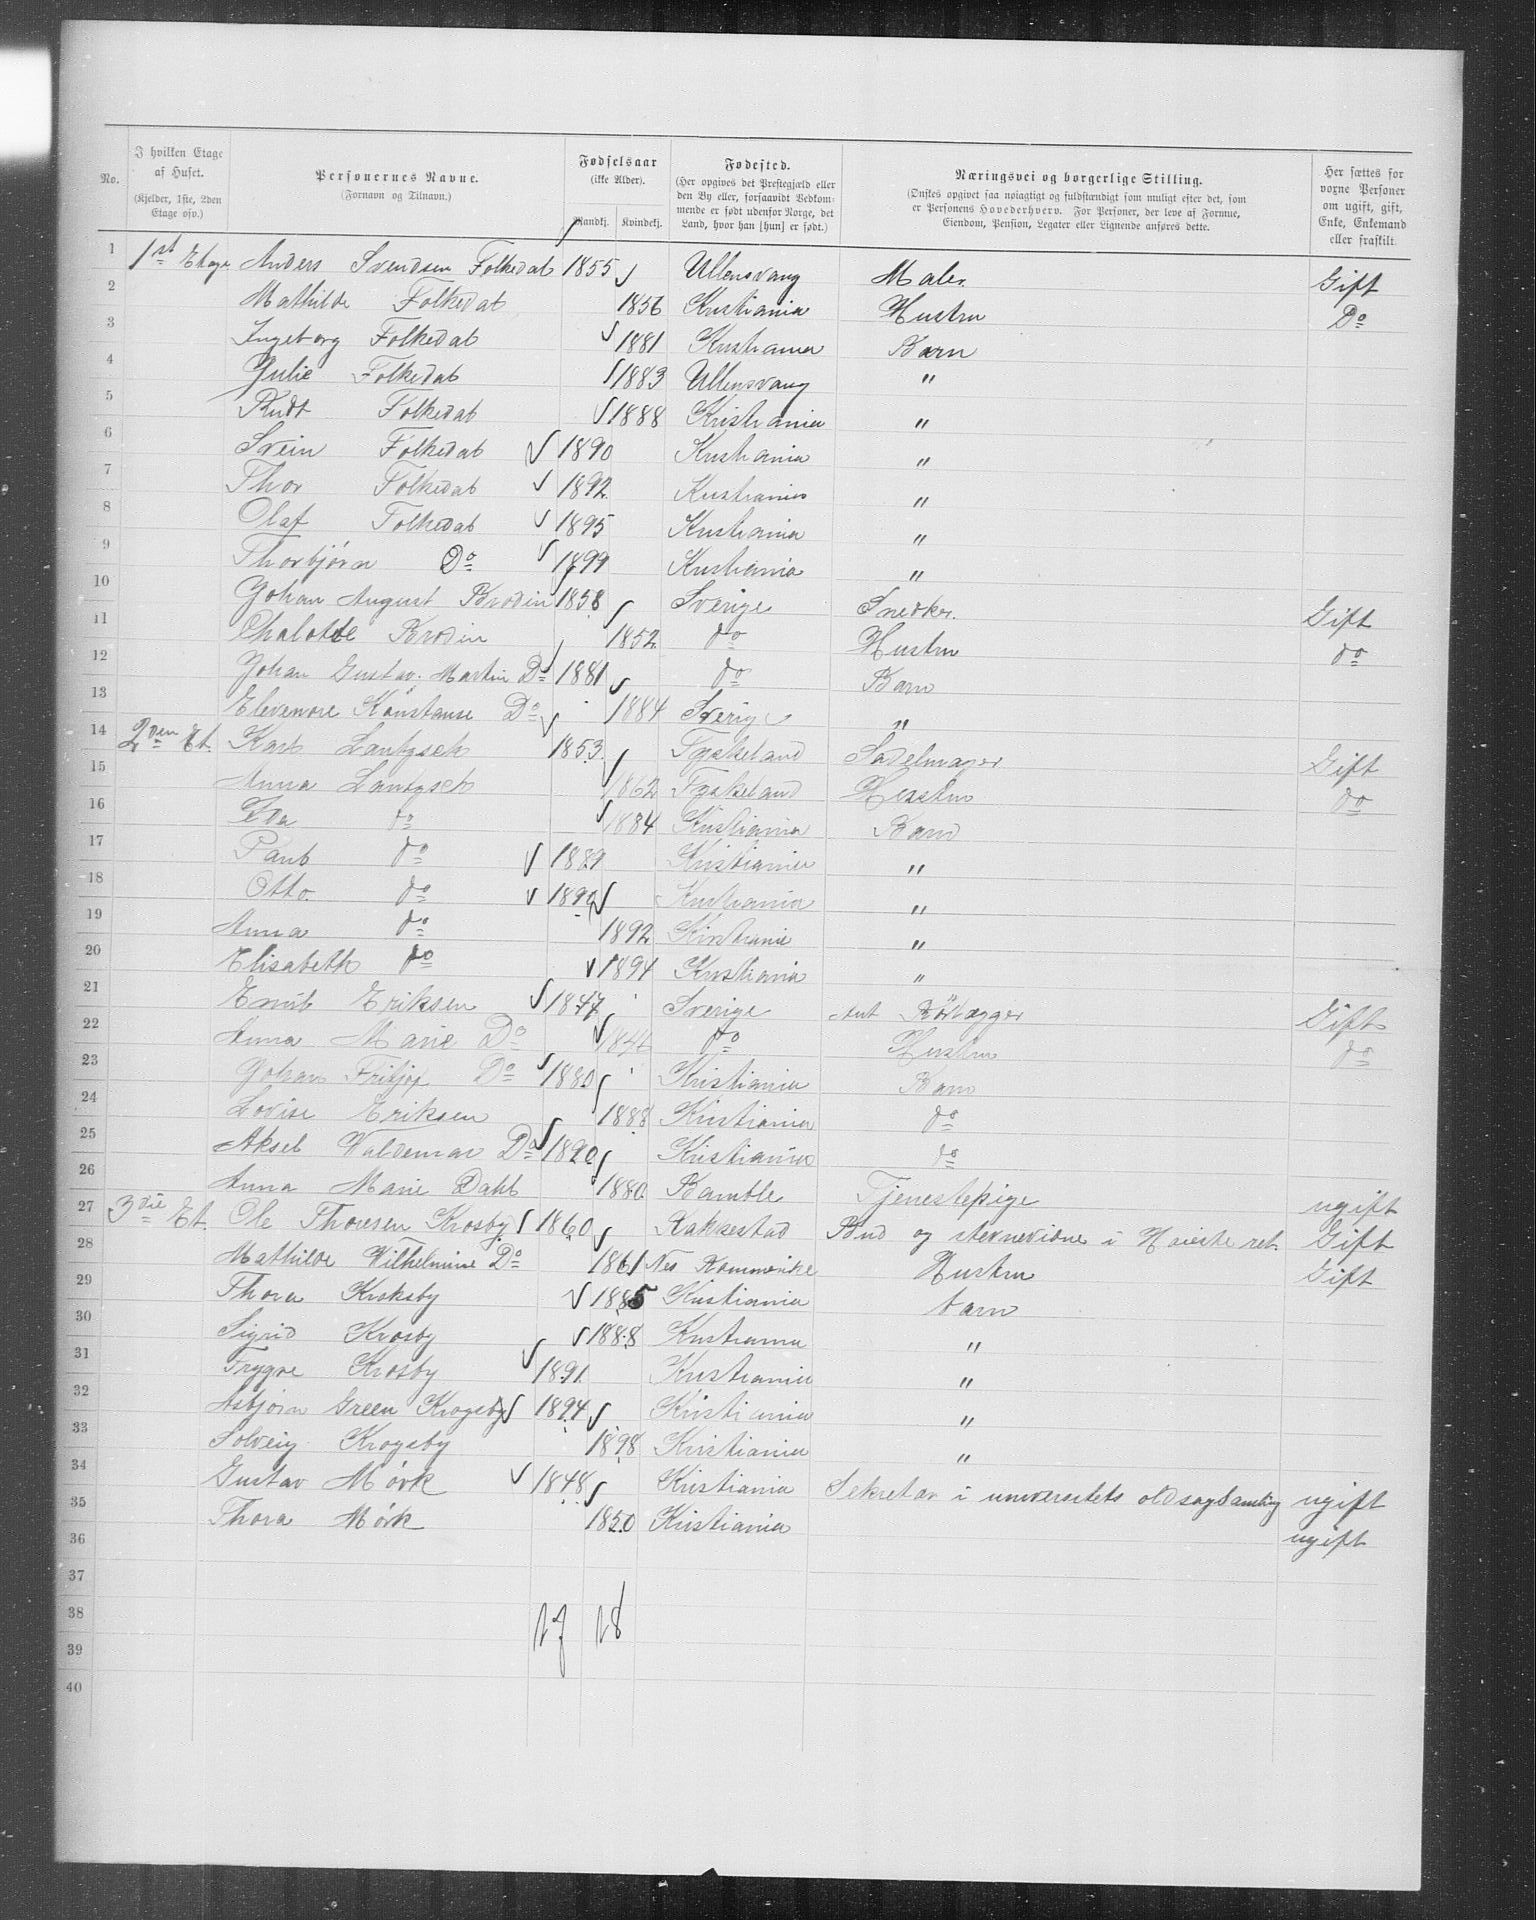 No.
I hvilken Etage af Huset.
(Kjelder, 1ste, 2den Etage osv.)
Personernes Navne.
(Fornavn og Tilnavn.)
Fødselsaar
(ikke Alder).
Mandkj. Kvindekj.
Fødested.
(Her opgives det Prestegjæld eller den By eller, forsaavidt Vedkommende er født udenfor Norge, det Land, hvor han [hun] er født.)
Næringsvei og borgerlige Stilling.
(Ønskes opgivet saa nøiagtigt og fuldstændigt som muligt efter det, som er Personens Hovederhverv. For Personer, der leve af Formue, Eiendom, Pension, Legater eller Lignende anføres dette.
Her sættes for voxne Personer om ugift, gift, Enke, Enkemand eller fraskilt.
1 1st Etage Anders Svendsen Folkedal 1855 Ullensvang Maler Gift
2 Mathilde Folkedal 1856 Kristiania Hustru Do
3 Ingeborg Folkedal 1881 Kristiania Barn
4 Julie Folkedal 1883 Ullensvang "
5 Rudt Folkedal 1888 Kristiania "
6 Svein Folkedal 1890 Kristiania "
7 Thor Folkedal 1892 Kristiania "
8 Olaf Folkedal 1895 Kristiania "
9 Thorbjörn Do 1899 Kristiania "
10 Johan August Brodin 1858 Sverige Snedker Gift
11 Chalotte Brodin 1852 do Hustru do
12 Johan Gustav Martin Do 1881 do Barn
13 Elevenore Konstanse Do 1884 Sverige "
14 2den Et. Karl Lantzsch 1853 Tyskeland Sadelmager Gift
15 Anna Lantzsch 1862 Tyskeland Hustru do
16 Ida do 1884 Kristiania Barn
17 Paul do 1889 Kristiania "
18 Otto do 1890 Kristiania "
19 Anna do 1892 Kristiania "
20 Elisabeth do 1894 Kristiania "
21 Emil Eriksen 1847 Sverige Rörlægger Gift
22 Anna Marie Do 1846 do Hustru do
23 Johan Fritjof Do 1880 Kristiania Barn
24 Lovise Eriksen 1888 Kristiania do
25 Aksel Valdemar Do 1890 Kristiania do
26 Anna Marie Dahl 1880 Bamble Tjenestepige ugift
27 3die Et. Ole Thoresen Krosby 1860 Rakkestad Bud og stevnevidne i Høieste ret. Gift
28 Mathilde Vilhelmine Do 1861 Nes Rommerike Hustru Gift
29 Thora Kroksby 1885 Kristiania barn
30 Sigrid Krosby 1888 Kristiania "
31 Trygve Krosby 1891 Kristiania "
32 Asbjørn Green Krogsby 1894 Kristiania "
33 Solveig Krogsby 1898 Kristiania "
34 Gustav Mörk 1848 Kristiania Sekretær i universitets oldsagsamling ugift
35 Thora Mörk 1850 Kristiania ugift
36
37
38 17 18
39
40